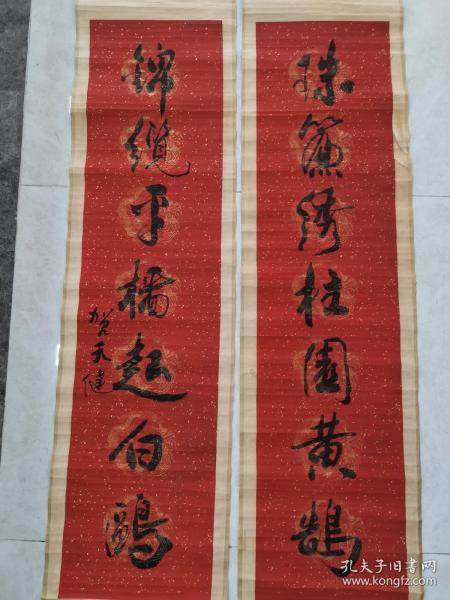 珠簾繡柱圍黃鵠
錦纜牙檣起白鷗
賀天健
孔夫子旧书网
www.kongfz.com